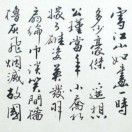 雪江山如畫一時
多少豪傑遙想
公瑾當年小喬初
嫁了雄姿英發羽
扇綸巾談笑間檣
櫓灰飛煙滅故國